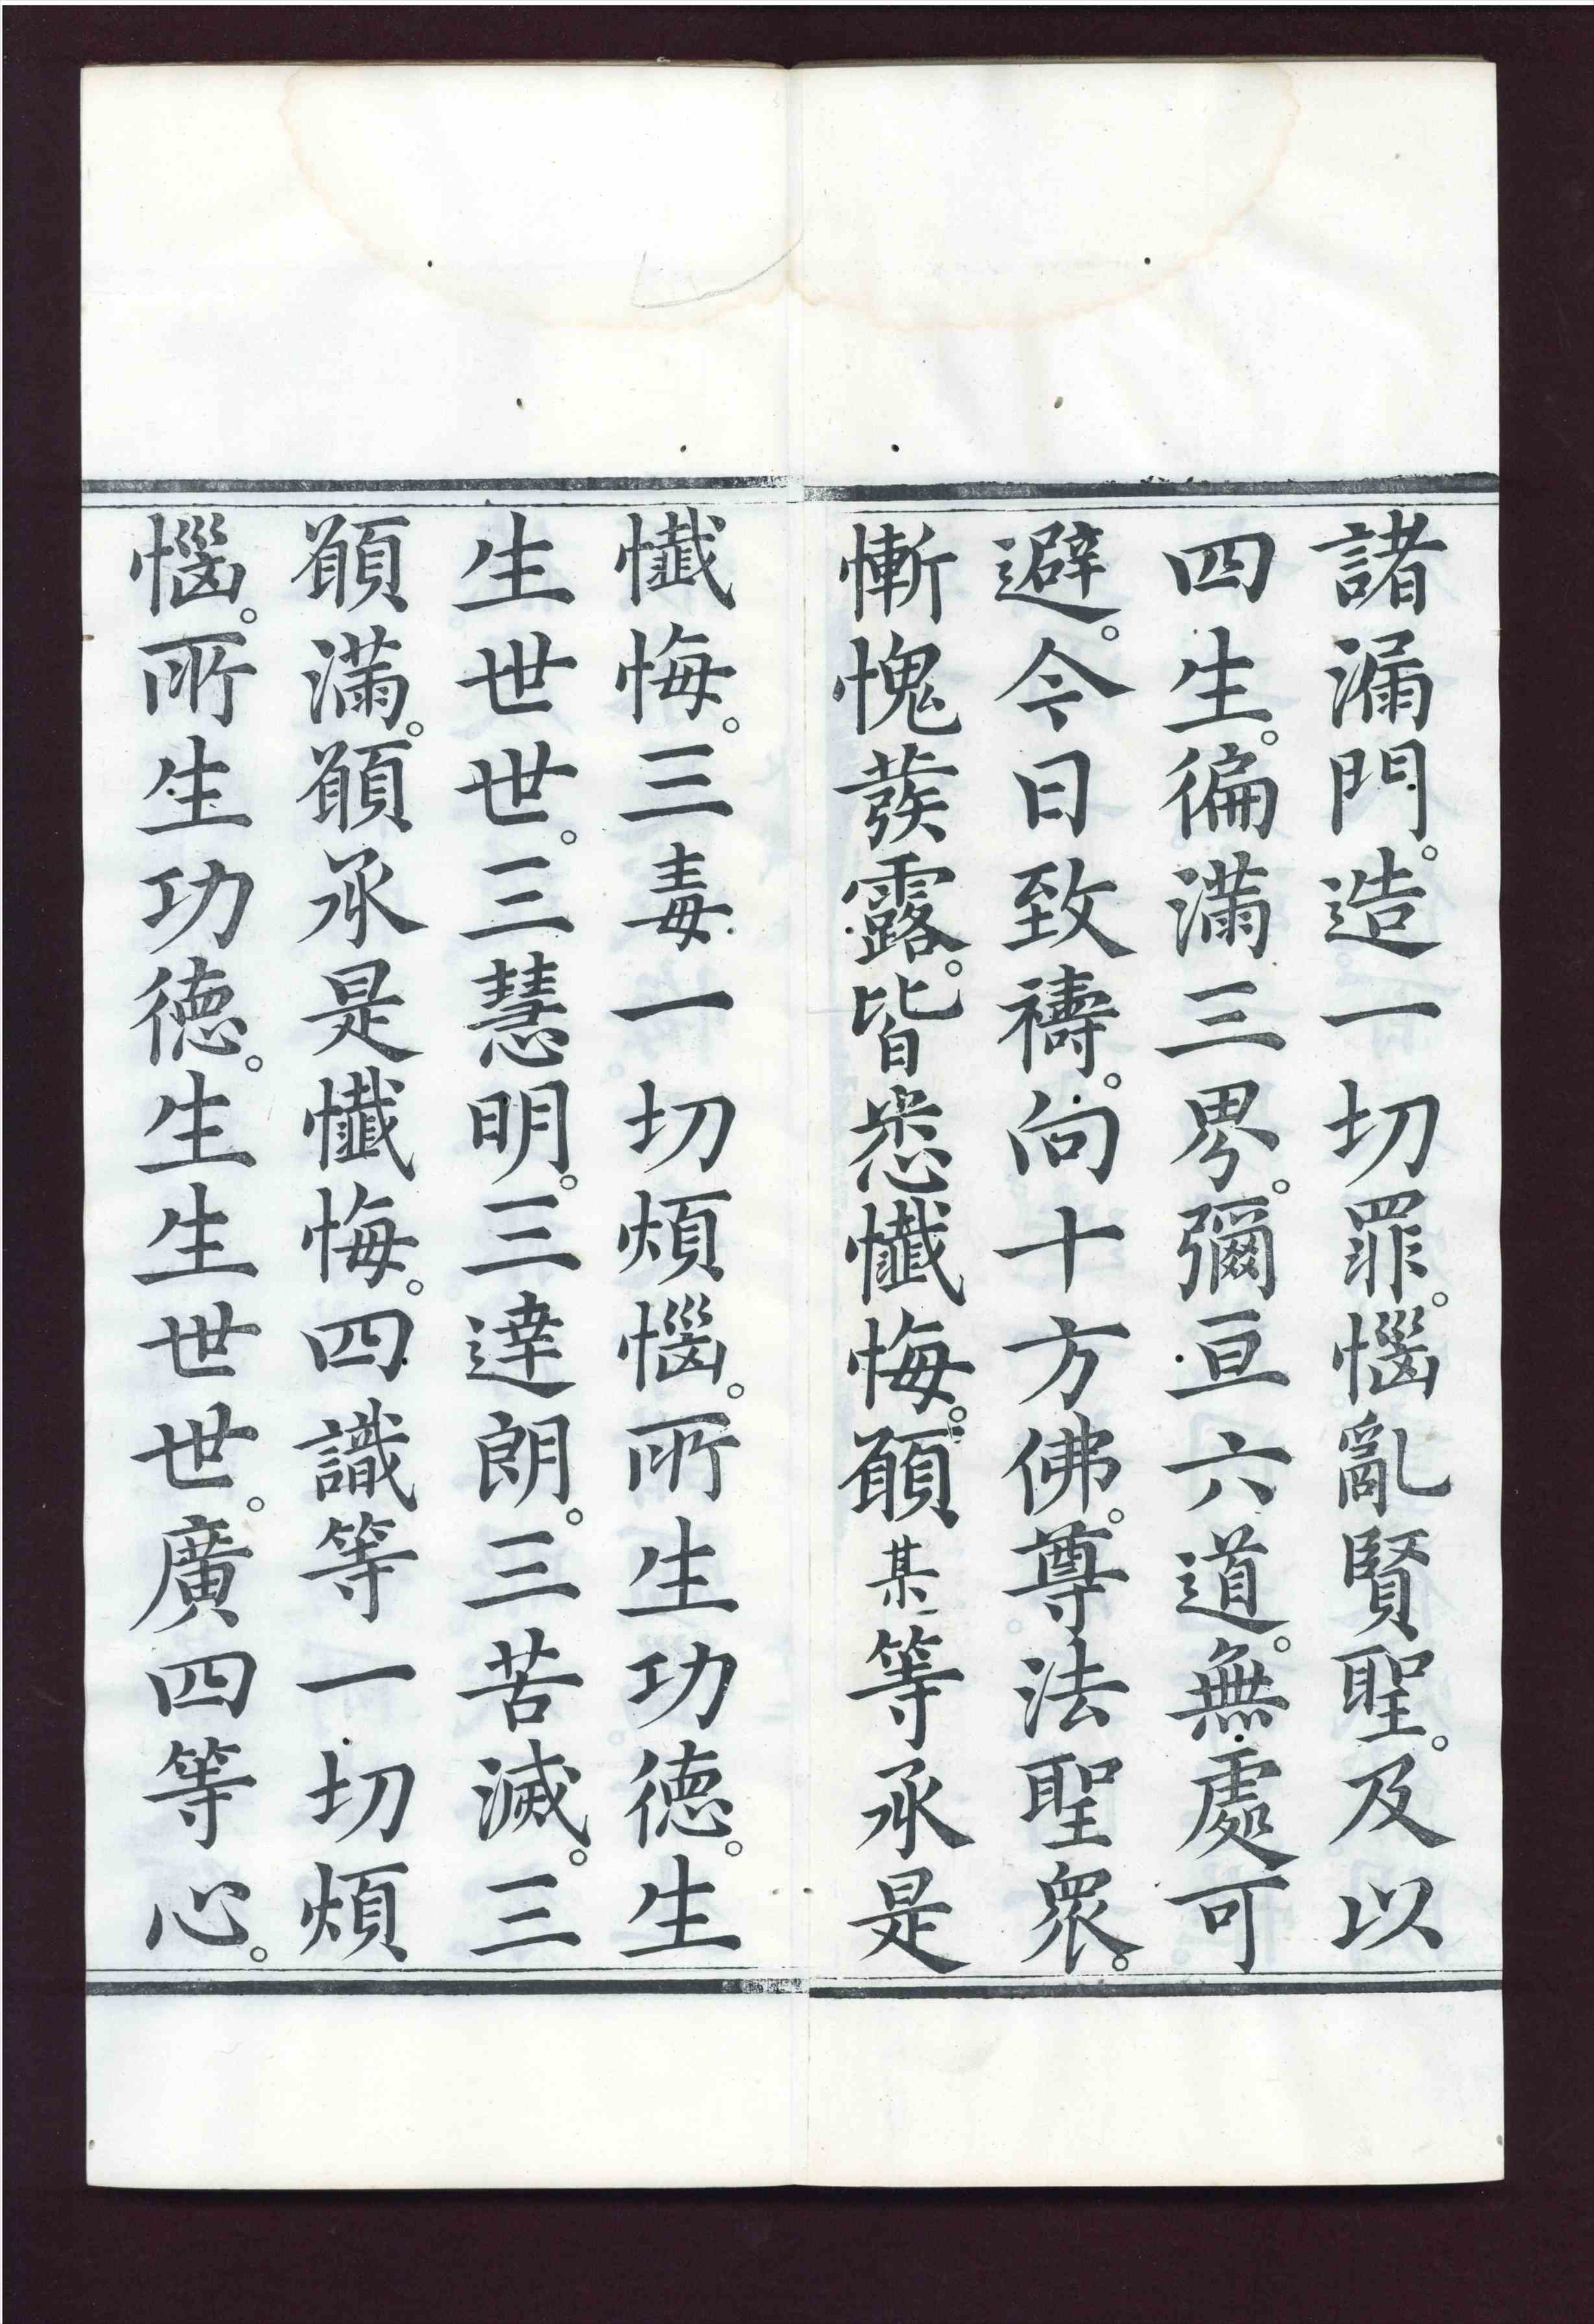 諸漏門。造一切罪。惱亂賢聖。及以
四生。徧滿三界。彌亘六道。無處可
避。今日致禱。向十方佛。尊法聖衆。
慚愧發露。皆悉懺悔。願某等承是
懺悔。三毒一切煩惱。所生功德。生
生世世。三慧明。三達朗。三苦滅。三
願滿。願承是懺悔。四識等一切煩
惱。所生功德。生生世世。廣四等心。